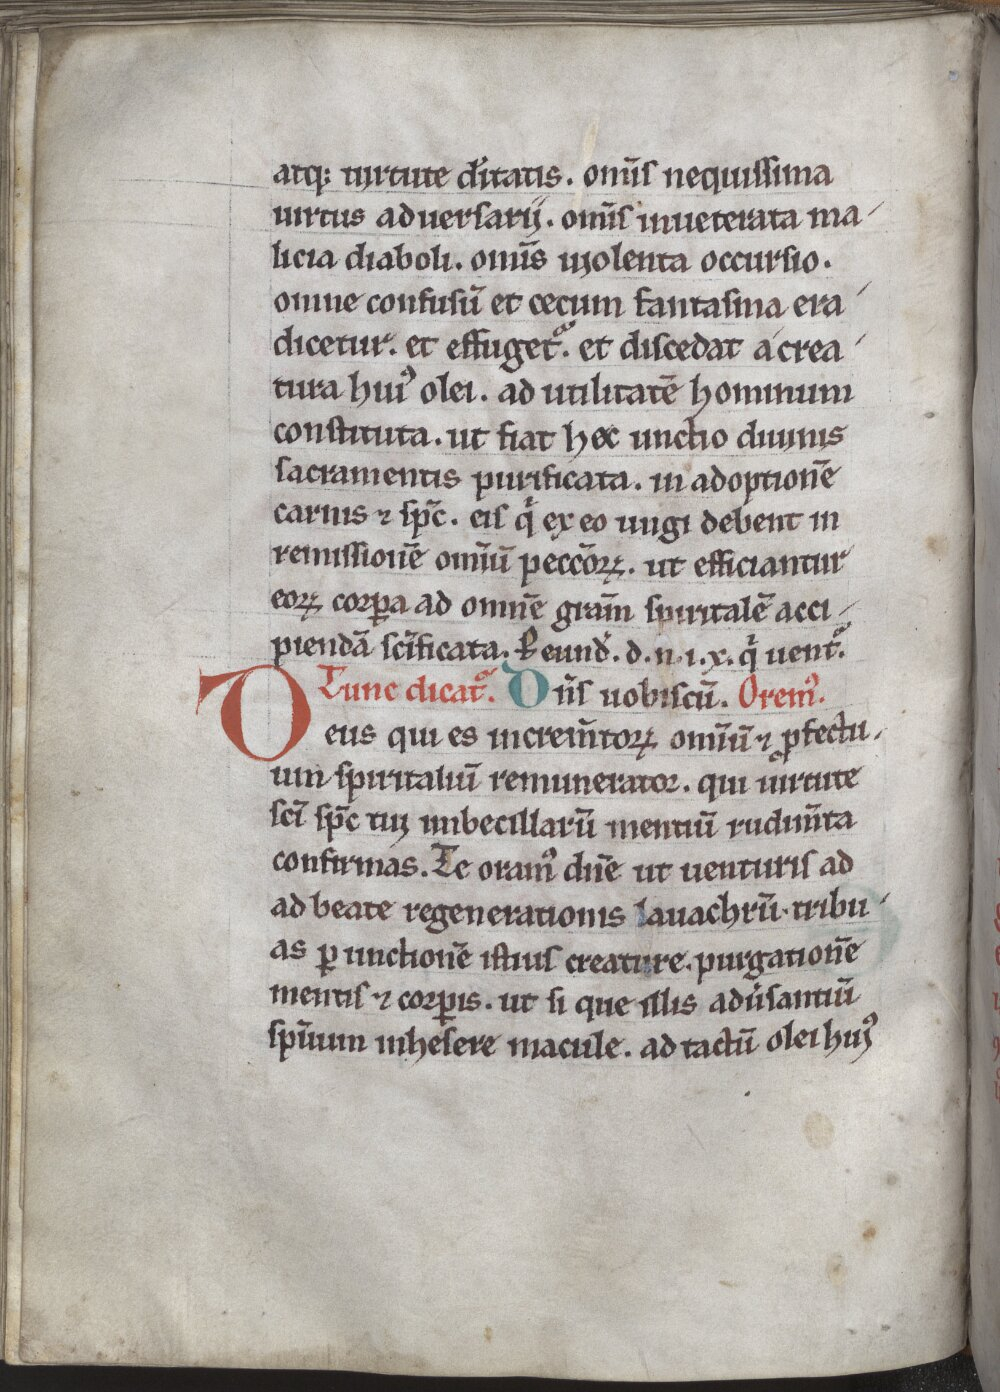 atq: uyrtute dĩtatis. om̄īs nequissima
uirtus aduersarij. om̄īs inueterata ma
licia diaboli. om̄īs uyolenta occursio.
omne confusū et cecum fantasma era
dicetur. et effugetᷓ. et discedat a crea
tura huiꝰ olei. ad utilitatē hominum
constituta. ut fiat hec unctio diuynis
sacramentis purificata. in adoptionē
carnis ⁊ sp̄c. eis q̇ ex eo ungi debent in
remissionē om̄iū pecc̄oꝝ. ut efficiantur
eoꝝ corꝑa ad omnē gr̄am spiritalē acci
piendā sc̄ificata. P eund̄. d. n. i. x. q̇ uentᷣ.
Tunc dicatᷓ. Dn̄s uobiscū. Oremꝰ.
Deus qui es increm̄toꝝ om̄iū ⁊ ꝓfectu
um spiritaliū remunerator. qui uirtute
sc̄i sp̄c tuy imbecillarū mentiū rudim̄ta
confirmas. Te oramꝰ dn̄e ut uenturis ad
ad beate regenerationis lauachrū. tribu
as ꝑ unctionē istius creature. purgationē
mentis ⁊ corꝑis. ut si que illis adũsantiū
sp̄uum inhesere macule. ad tactū olei huyꝰ